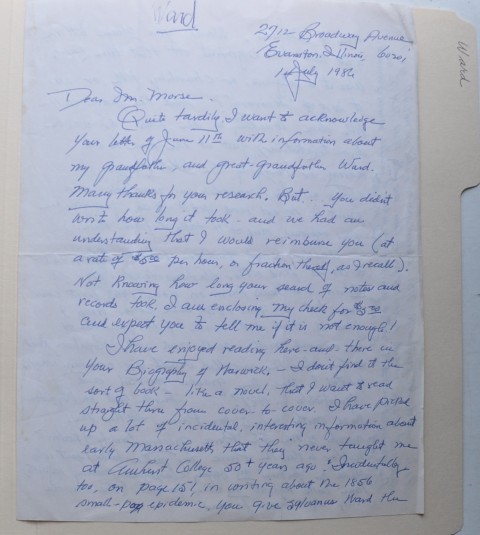 Ward
2712 Broadway Avenue
Evanston, Illinois, 60201
1 July 1986
Ward
Dear Mr. Morse -
Quite tardily, I want to acknowledge
your letter of June 11th with information about
my grandfather, and great-grandfather Ward.
Many thanks for your research. But... you didn't
write how long it took - and we had an
understanding that I would reimburse you (at
a rate of $5.00 per hour, or fraction thereof, as I recall).
Not knowing how long your search of notes and
records took, I am enclosing my check for $5.00
and expect you to tell me if it is not enough!
I have enjoyed reading here-and-there in
your Biography of Warwick. - I don't find it the
sort of book - like a novel, that I want to read
straight thru from cover-to-cover. I have picked
up a lot of incidental, interesting information about
early Massachusetts that "they" never taught me
at Amherst College 50+ years ago. Incidentally,
too, on page 151, in writing about the 1856
small-pox epidemic, you give Sylvanus Ward the